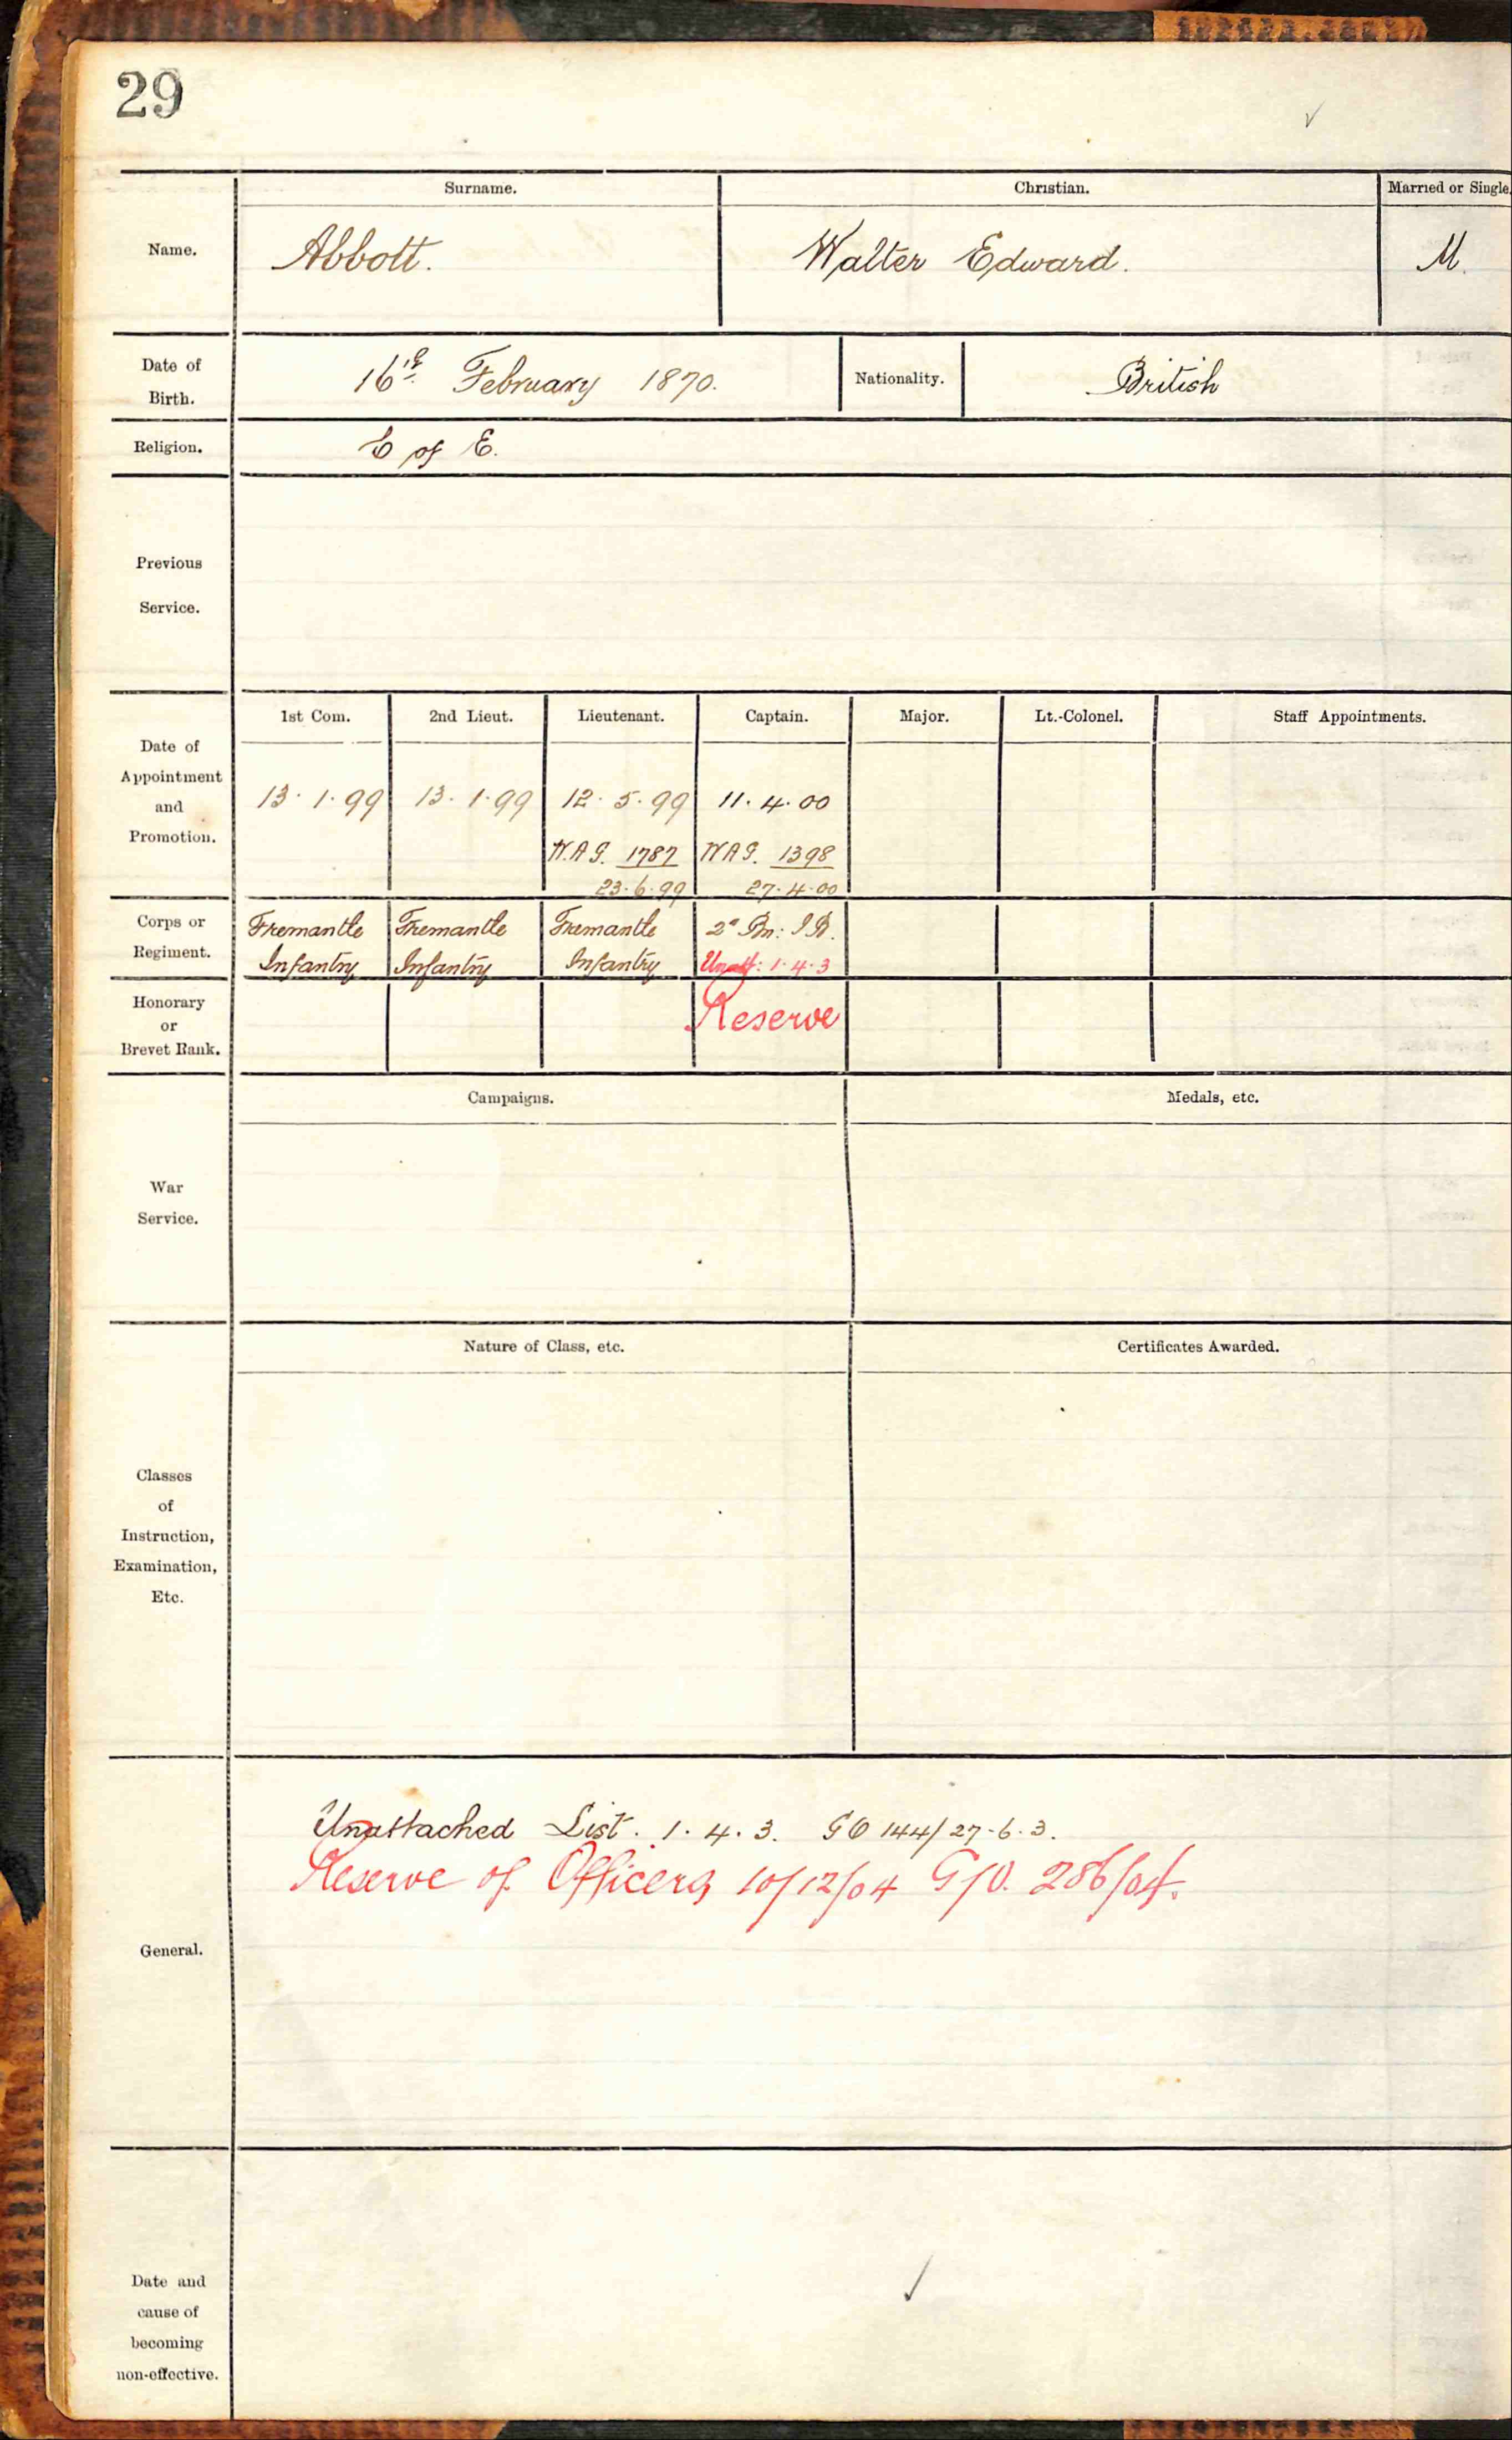 29
Surname. Christian. Married or Single.
Name. Abbott. Walter Edward. M.
Date of Birth. 16th February 1870. Nationality. British
Religion. C of E.
Previous
Service.
1st Com. 2nd Lieut. Lieutenant. Captain. Major. Lt.-Colonel. Staff Appointments.
Date of
Appointment
and
Promotion.
13. 1. 99 13. 1. 99 12. 5. 99 11. 4. 00
W.A.G. 1787 WAG. 1398
23. 6. 99 27. 4. 00
Corps or Fremantle Fremantle Fremantle 2d Bn: I B.
Regiment. Infantry Infantry Infantry Unatt: 1. 4. 3
Honorary
or
Brevet Rank.
Reserve
Campaigns. Medals, etc.
War
Service.
Nature of Class, etc. Certificates Awarded.
Classes
of
Instruction,
Examination,
Etc.
Unattached List. 1. 4. 3. GO 144/27-6-3.
Reserve of Officers 10/12/04 G/O. 286/04.
General.
Date and
cause of
becoming
non-effective.